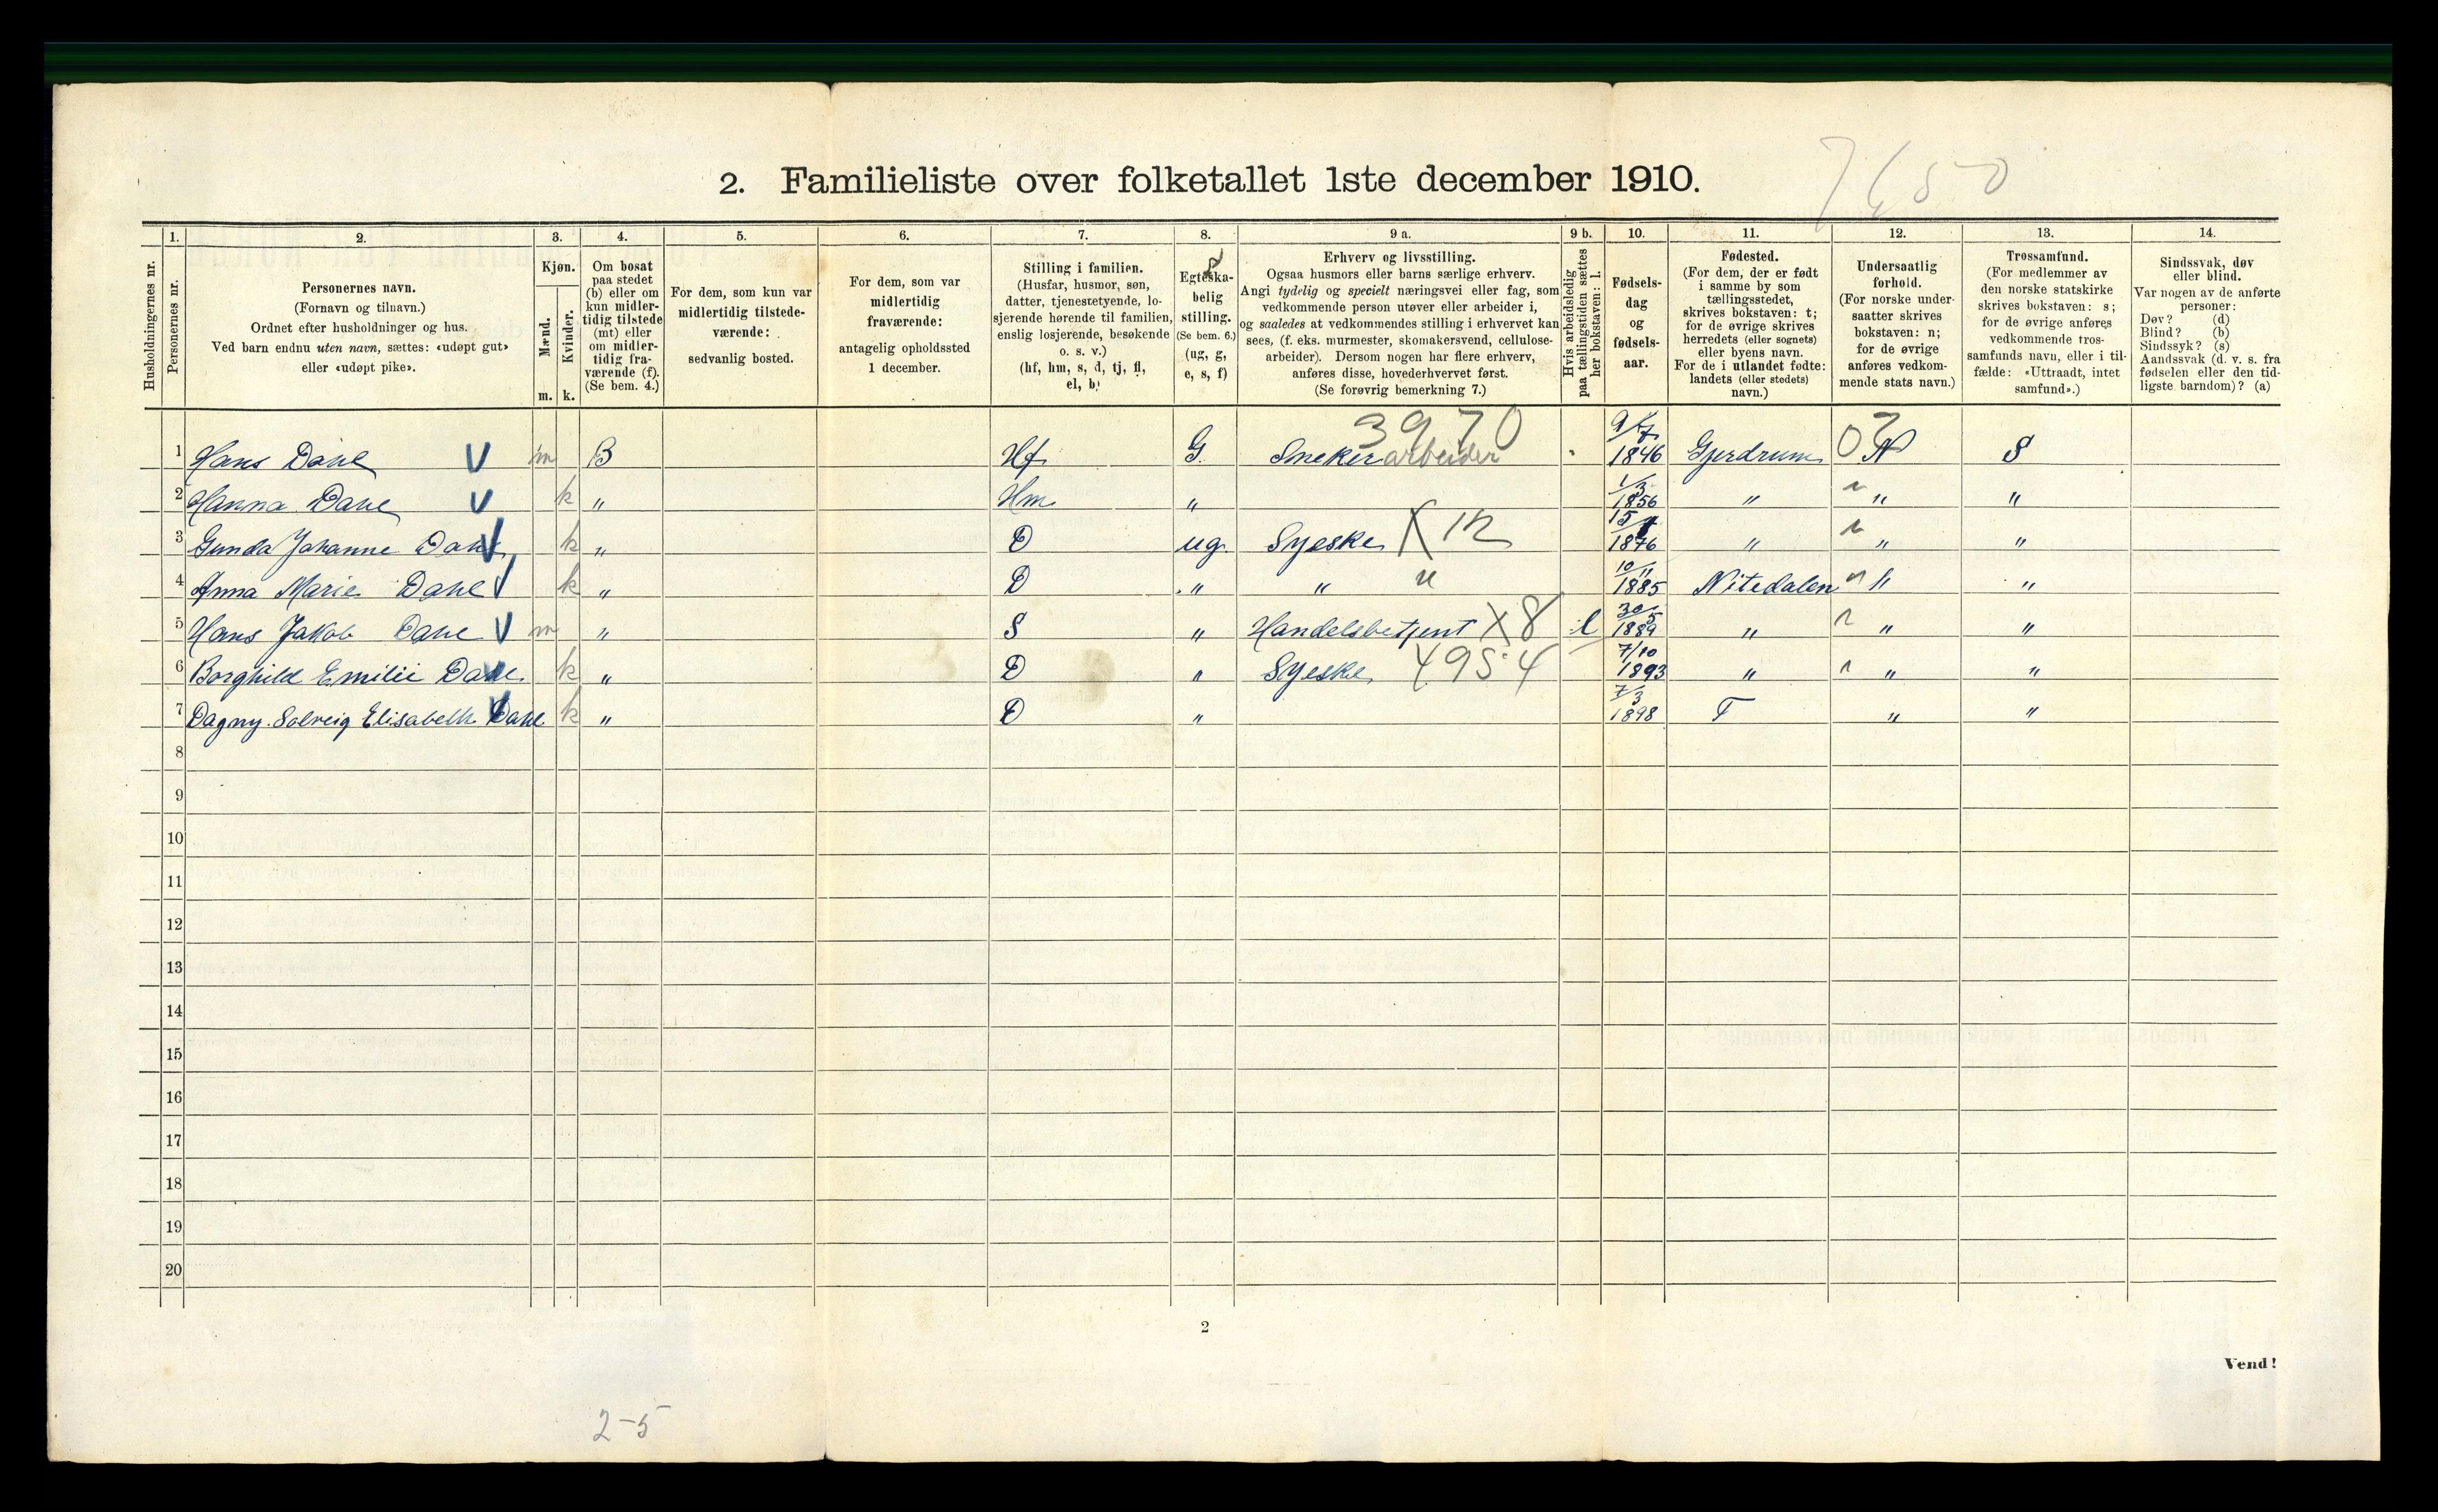 7650
2. Familieliste over folketallet 1ste december 1910.
1. 2. 3. 4. 5. 6. 7. 8. 9 a. 9 b. 10. 11. 12. 13. 14.
Husholdningernes nr.
Personernes nr.
Personernes navn.
(Fornavn og tilnavn.)
Ordnet efter husholdninger og hus.
Ved barn endnu uten navn, sættes: «udøpt gut»
eller «udøpt pike».
Kjøn.
Mænd.
Kvinder.
m. k.
Om bosat
paa stedet
(b) eller om
kun midler-
tidig tilstede
(mt) eller
om midler-
tidig fra-
værende (f).
(Se bem. 4.)
For dem, som kun var
midlertidig tilstede-
værende:
sedvanlig bosted.
For dem, som var
midlertidig
fraværende:
antagelig opholdssted
1 december.
Stilling i familien.
(Husfar, husmor, søn,
datter, tjenestetyende, lo-
sjerende hørende til familien,
enslig losjerende, besøkende
o. s. v.)
(hf, hm, s, d, tj, fl,
el, b)
Egteska-
belig
stilling.
(Se bem. 6.)
(ug, g,
e, s, f)
Erhverv og livsstilling.
Ogsaa husmors eller barns særlige erhverv.
Angi tydelig og specielt næringsvei eller fag, som
vedkommende person utøver eller arbeider i,
og saaledes at vedkommendes stilling i erhvervet kan
sees, (f. eks. murmester, skomakersvend, cellulose-
arbeider). Dersom nogen har flere erhverv,
anføres disse, hovederhvervet først.
(Se forøvrig bemerkning 7.)
Hvis arbeidsledig
paa tællingstiden sættes
her bokstaven: l.
Fødsels-
dag
og
fødsels-
aar.
Fødested.
(For dem, der er født
i samme by som
tællingsstedet,
skrives bokstaven: t;
for de øvrige skrives
herredets (eller sognets)
eller byens navn.
For de i utlandet fødte:
landets (eller stedets)
navn.)
Undersaatlig
forhold.
(For norske under-
saatter skrives
bokstaven: n;
for de øvrige
anføres vedkom-
mende stats navn.)
Trossamfund.
(For medlemmer av
den norske statskirke
skrives bokstaven: s;
for de øvrige anføres
vedkommende tros-
samfunds navn, eller i til-
fælde: «Uttraadt, intet
samfund».)
Sindssvak, døv
eller blind.
Var nogen av de anførte
personer:
Døv? (d)
Blind? (b)
Sindssyk? (s)
Aandssvak (d. v. s. fra
fødselen eller den tid-
ligste barndom)? (a)
3970
1 Hans Dahl V m B Hf G. Snekerarbeider 9/7 1846 Gjerdrum N S
2 Hanna Dahl V k " Hm " 1/3 1856 " n " "
3 Gunda Johanne Dahl V k " D ug. Syeske X 12 1876 " n " "
4 Anna Marie Dahl V k " D " " " 10/11 1885 Nitedalen n " "
5 Hans Jakob Dahl V m " S " Handelsbetjent X8 l 30/5 1889 " n " "
6 Borghild Emilie Dahl V k " D " Syeske 495·4 7/10 1893 " n " "
7 Dagny Solveig Elisabeth Dahl V k " D " 7/3 1898 T " "
8
9
10
11
12
13
14
15
16
17
18
19
20
2
Vend!
2-5